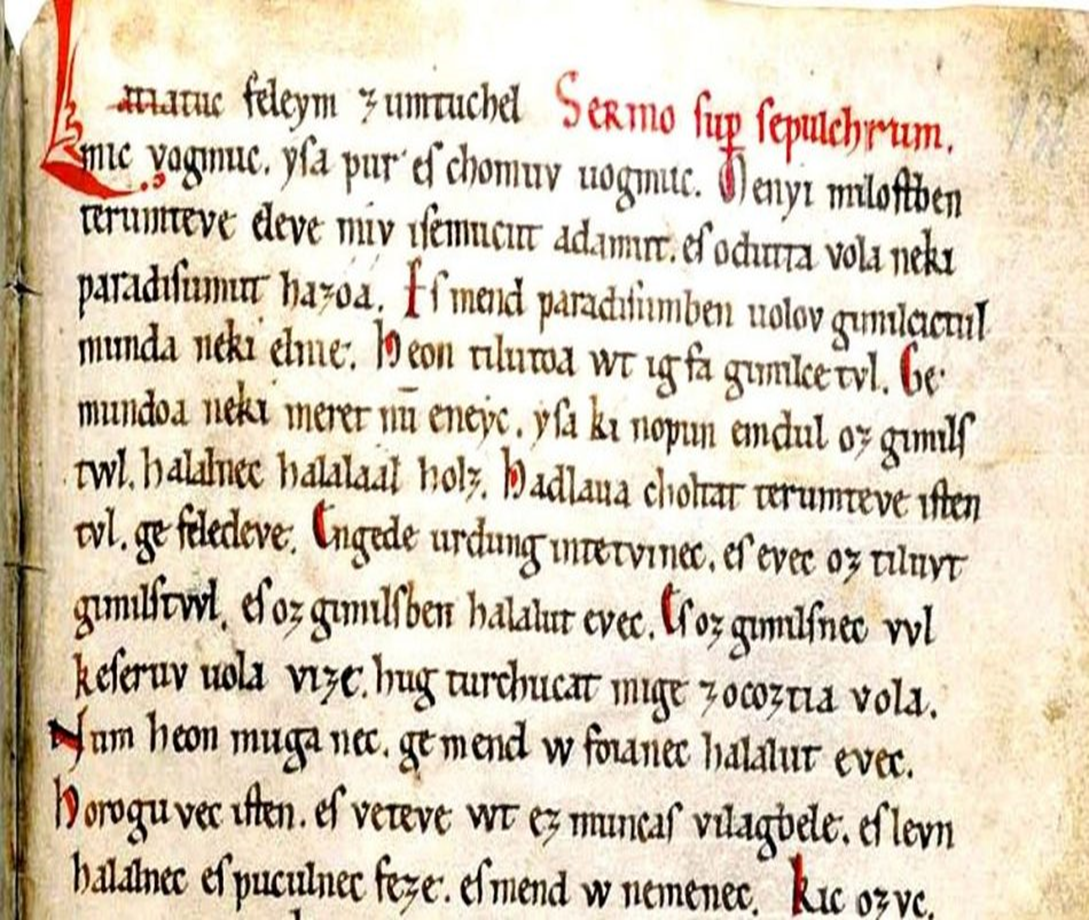 Latiatuc feleym zumtuchel Sermo ſup ſepulchrum.
mic vogmuc. yſa pur eſ chomuv uogmuc. Menyi miloſtben
terumteve eleve miv iſemucut adamut. eſ odutta vola neki
paradiſumut hazoa. Eſ mend paradiſumben uolov gimilcictul
munda neki elnie. Heon tilutoa wt ig fa gimilce tvl. Ge
mundoa neki meret nū eneyc. yſa ki nopun emdul oz gimilſ
twl. halalnec halalaal holz. Hadlaua choltat terumteve iſten
tvl. ge feledeve. Engede urdung intetvinec. eſ evec oz tiluvt
gimilſtwl. eſ oz gimilſben halalut evec. Eſ oz gimilſnec vvl
keſeruv uola vize. hug turchucat mige zocoztia vola.
Num heon muga nec. ge mend w foianec halalut evec.
Horogu vec iſten. eſ veteve wt ez muncaſ vilagbele. eſ levn
halalnec eſ puculnec feze. eſ mend w nemenec. Kic ozvc.